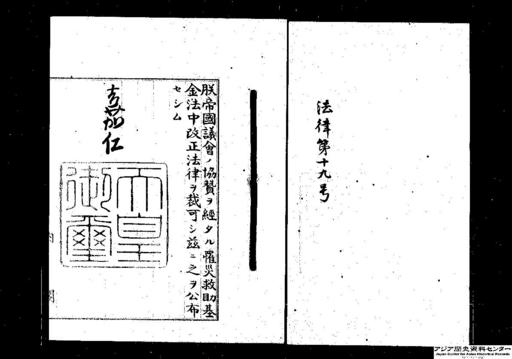 法律第十九号
朕帝國議會ノ協贊ヲ經タル罹災救助基
金法中改正法律ヲ裁可シ茲ニ之ヲ公布
セシム
嘉仁
天皇
御璽
アジア歴史資料センター
Japan Center for Asian Historical Records